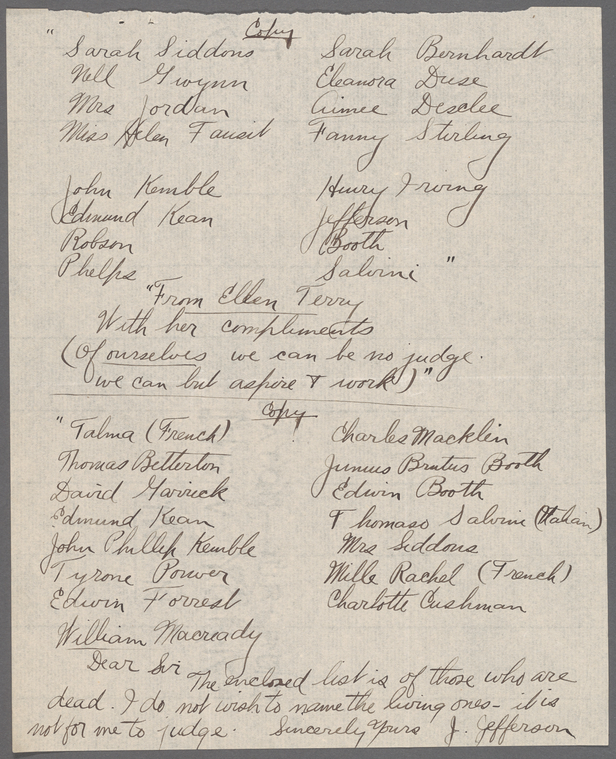 Copy
" Sarah Siddons Sarah Bernhardt
Nell Gwynn Eleanora Duse
Mrs Jordan Aimee Desclee
Miss Helen Fausit Fanny Stirling
John Kemble Henry Irving
Edmund Kean Jefferson
Robson Booth
Phelps Salvini "
"From Ellen Terry
With her compliments
(Of ourselves we can be no judge.
we can but aspire & work)"
Copy
" Talma (French) Charles Macklin
Thomas Betterton Junius Brutus Booth
David Garrick Edwin Booth
Edmund Kean Thomaso Salvini (Italian)
John Phillip Kemble Mrs Siddons
Tyrone Power Mlle Rachel (French)
Edwin Forrest Charlotte Cushman
William Macready
Dear Sir
The enclosed list is of those who are
dead. I do not wish to name the living ones - it is
not for me to judge. Sincerely Yours J. Jefferson